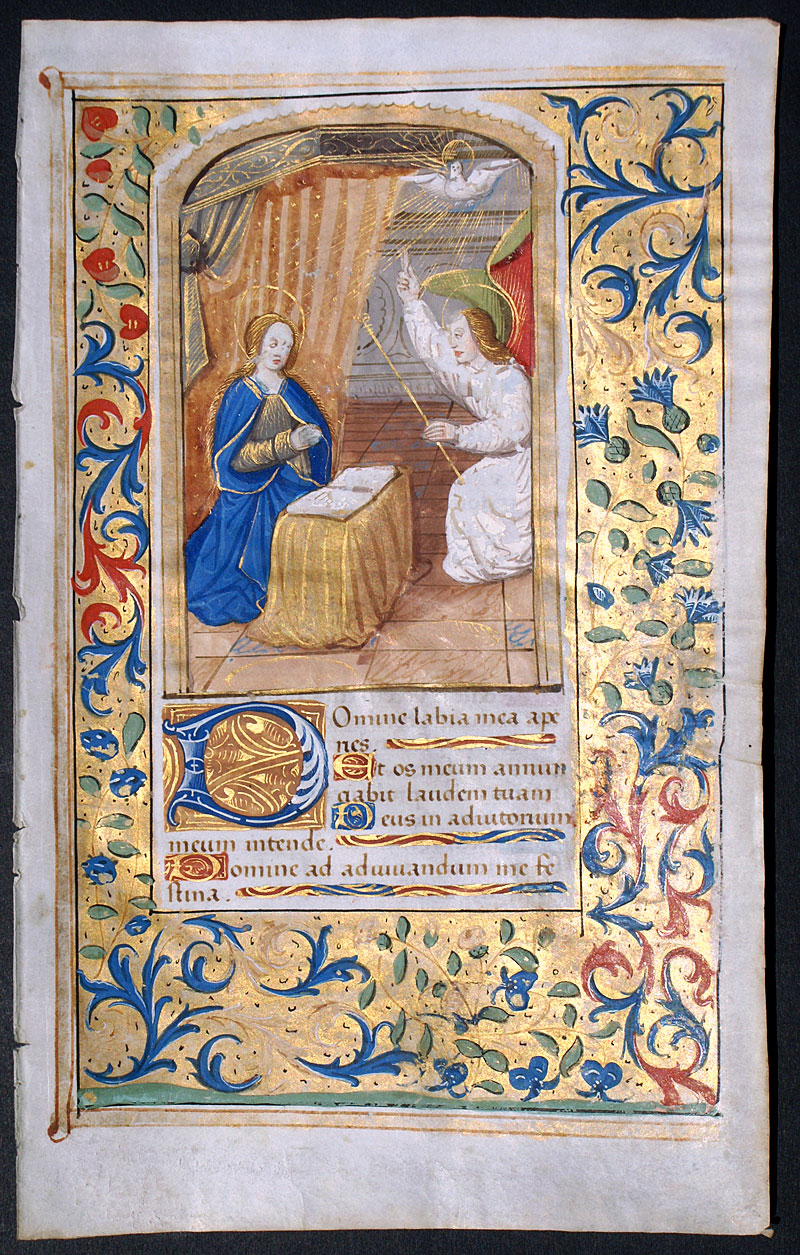 Domine labia mea ape
ries.
Et os meum annun
ciabit laudem tuam
Deus in adiutorium
meum intende.
Domine ad adiuuandum me fe
stina.